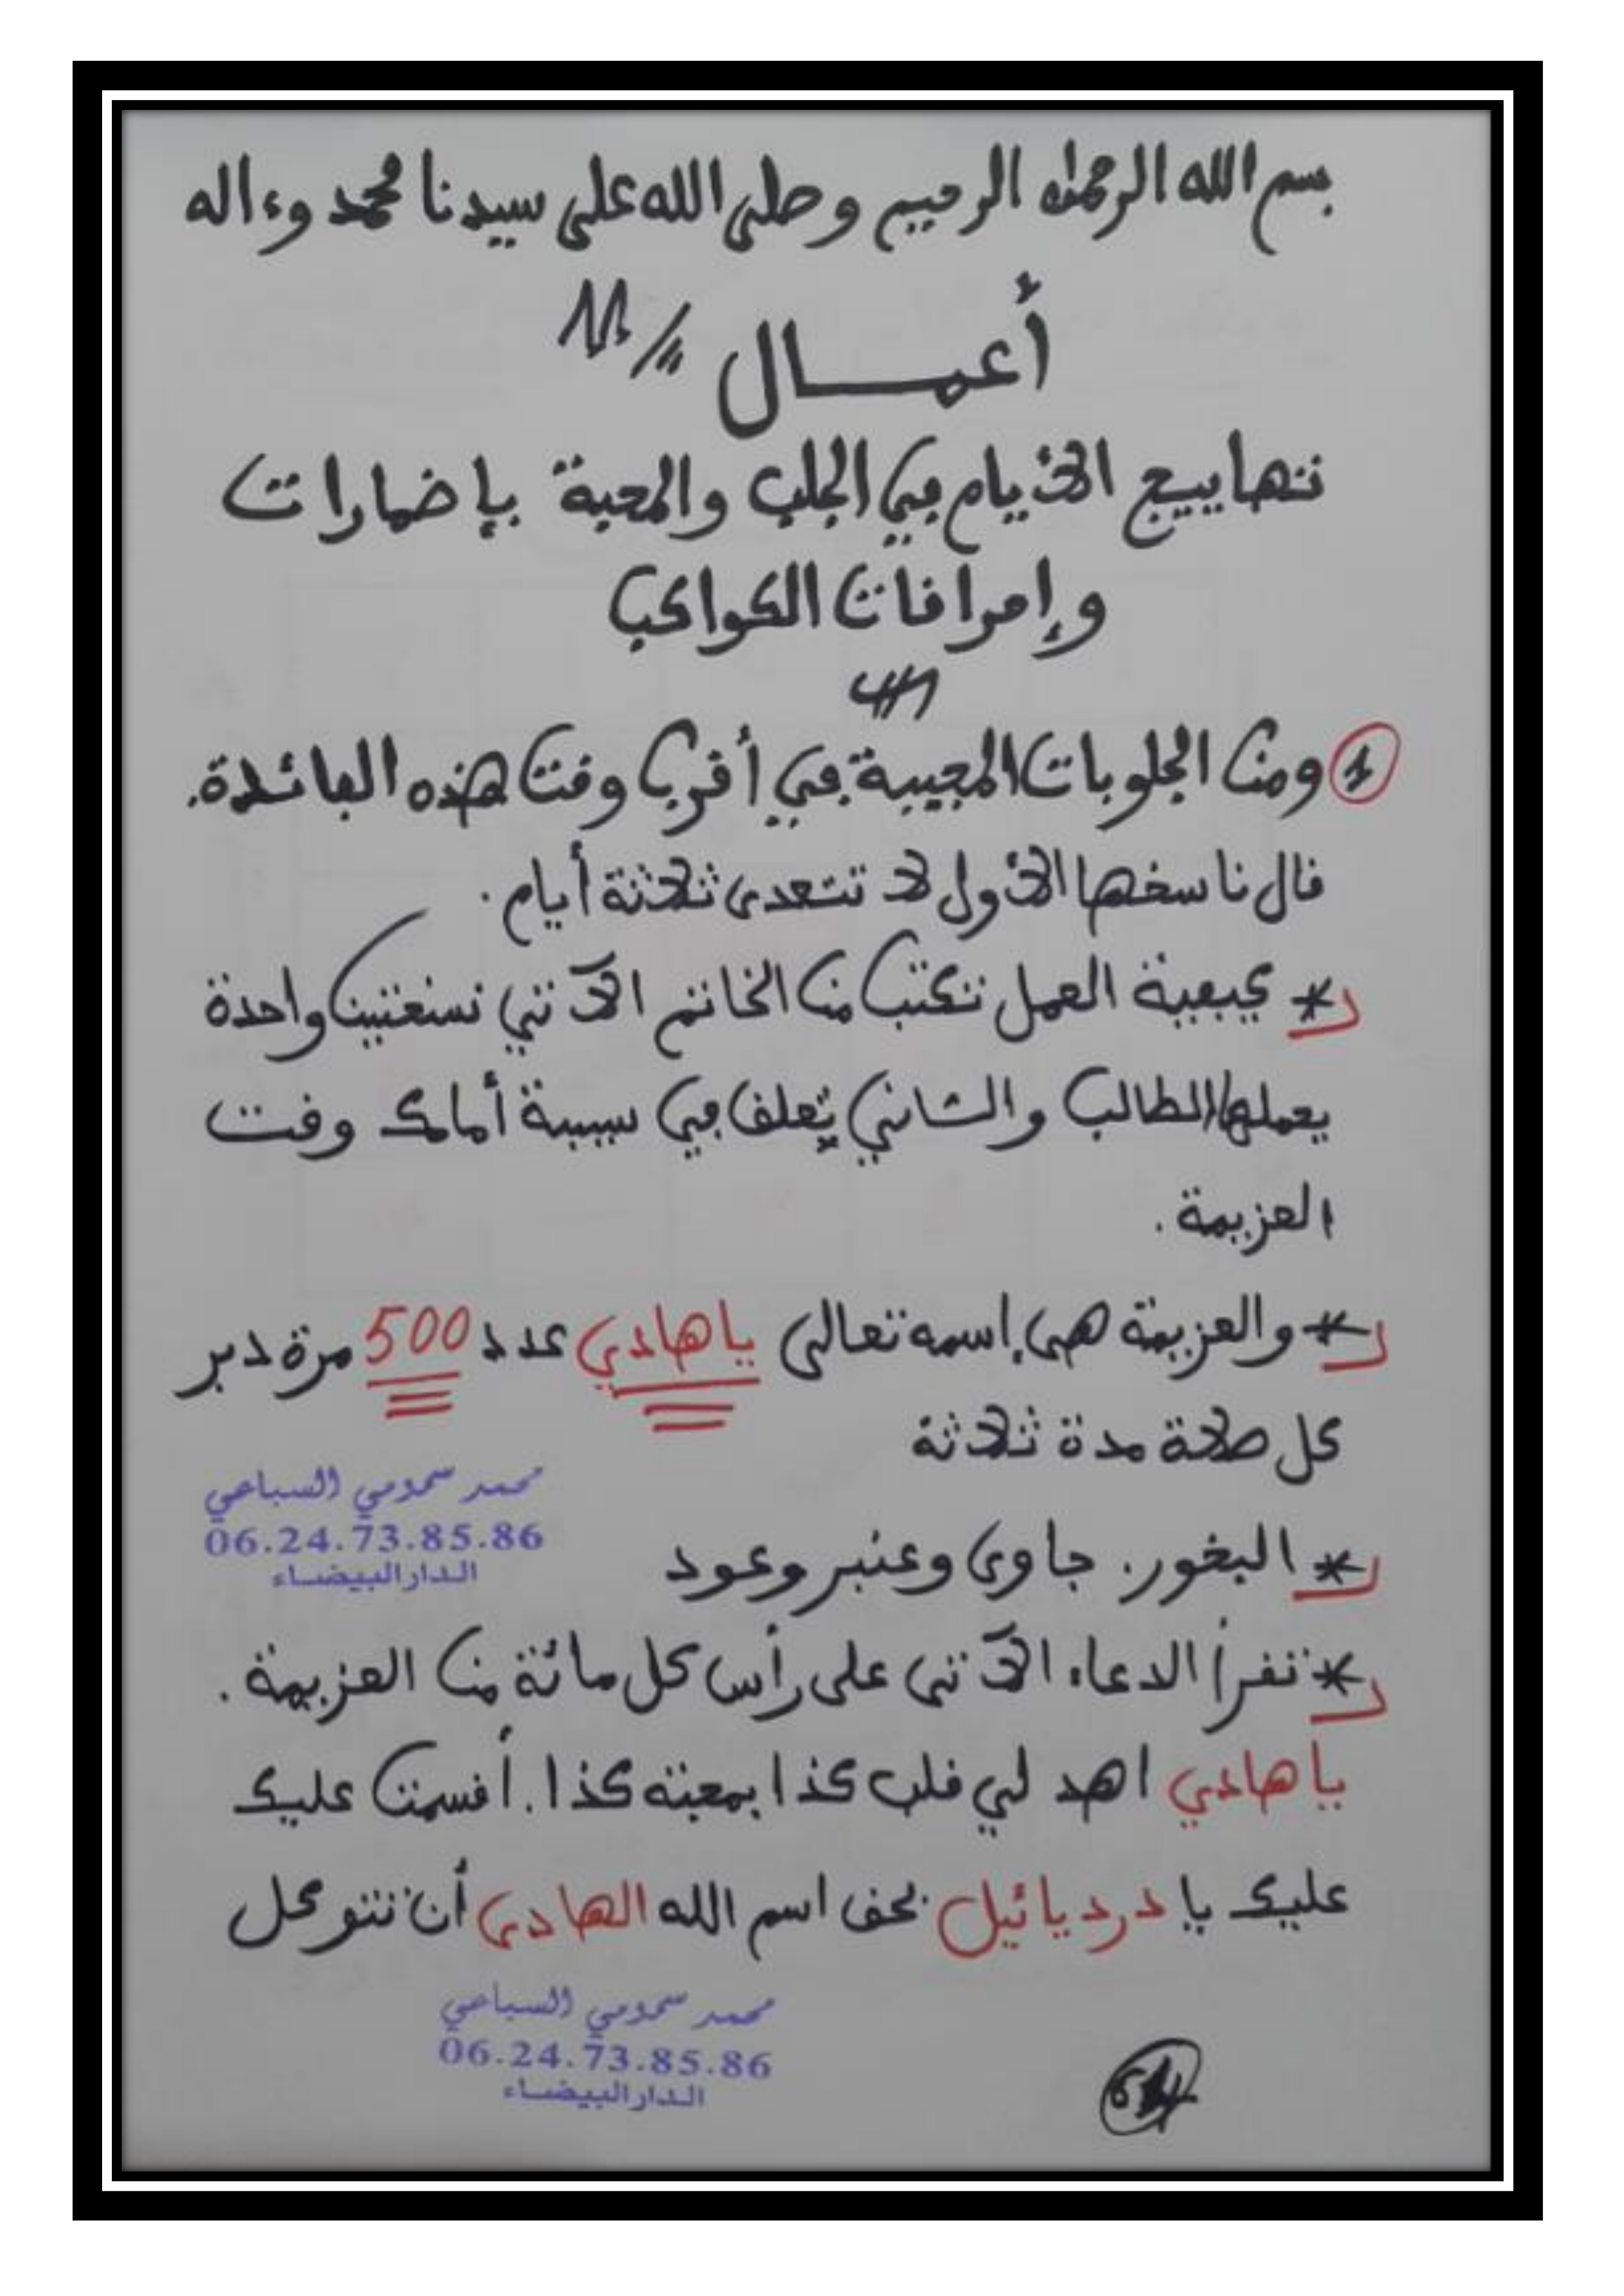 بسم الله الرحمن الرحيم وصلى الله على سيدنا محمد وءاله
أعمــــال
تهاييج الأيام في الجلب والمحبة بإضمارات
وإمرافات الكواكب
1 ومن الجلوبات المجيبة في أقرب وقت هذه الفائدة.
قال ناسخها الأول لا تتعدى ثلاثة أيام.
* كيفية العمل تكتب من الخاتم الآتي نسختين واحدة
يحملها الطالب والثاني يعلق في سيبة أمامك وقت
العزيمة.
* والعزيمة هي إسمه تعالى ياهادي عدد 500 مرة دبر
كل صلاة مدة ثلاثة
محمد سمومي السباعي
06.24.73.85.86
الدارالبيضاء
* البخور. جاوي وعنبر وعود
* تقرأ الدعاء الآتي على رأس كل مائة من العزيمة.
ياهادي اهد لي قلب كذا بمحبته كذا. أقسمت عليك
عليك يا دردیائیل بحق اسم الله الهادي أن تتوكل
محمد سمومي السباعي
06.24.73.85.86
الدارالبيضاء